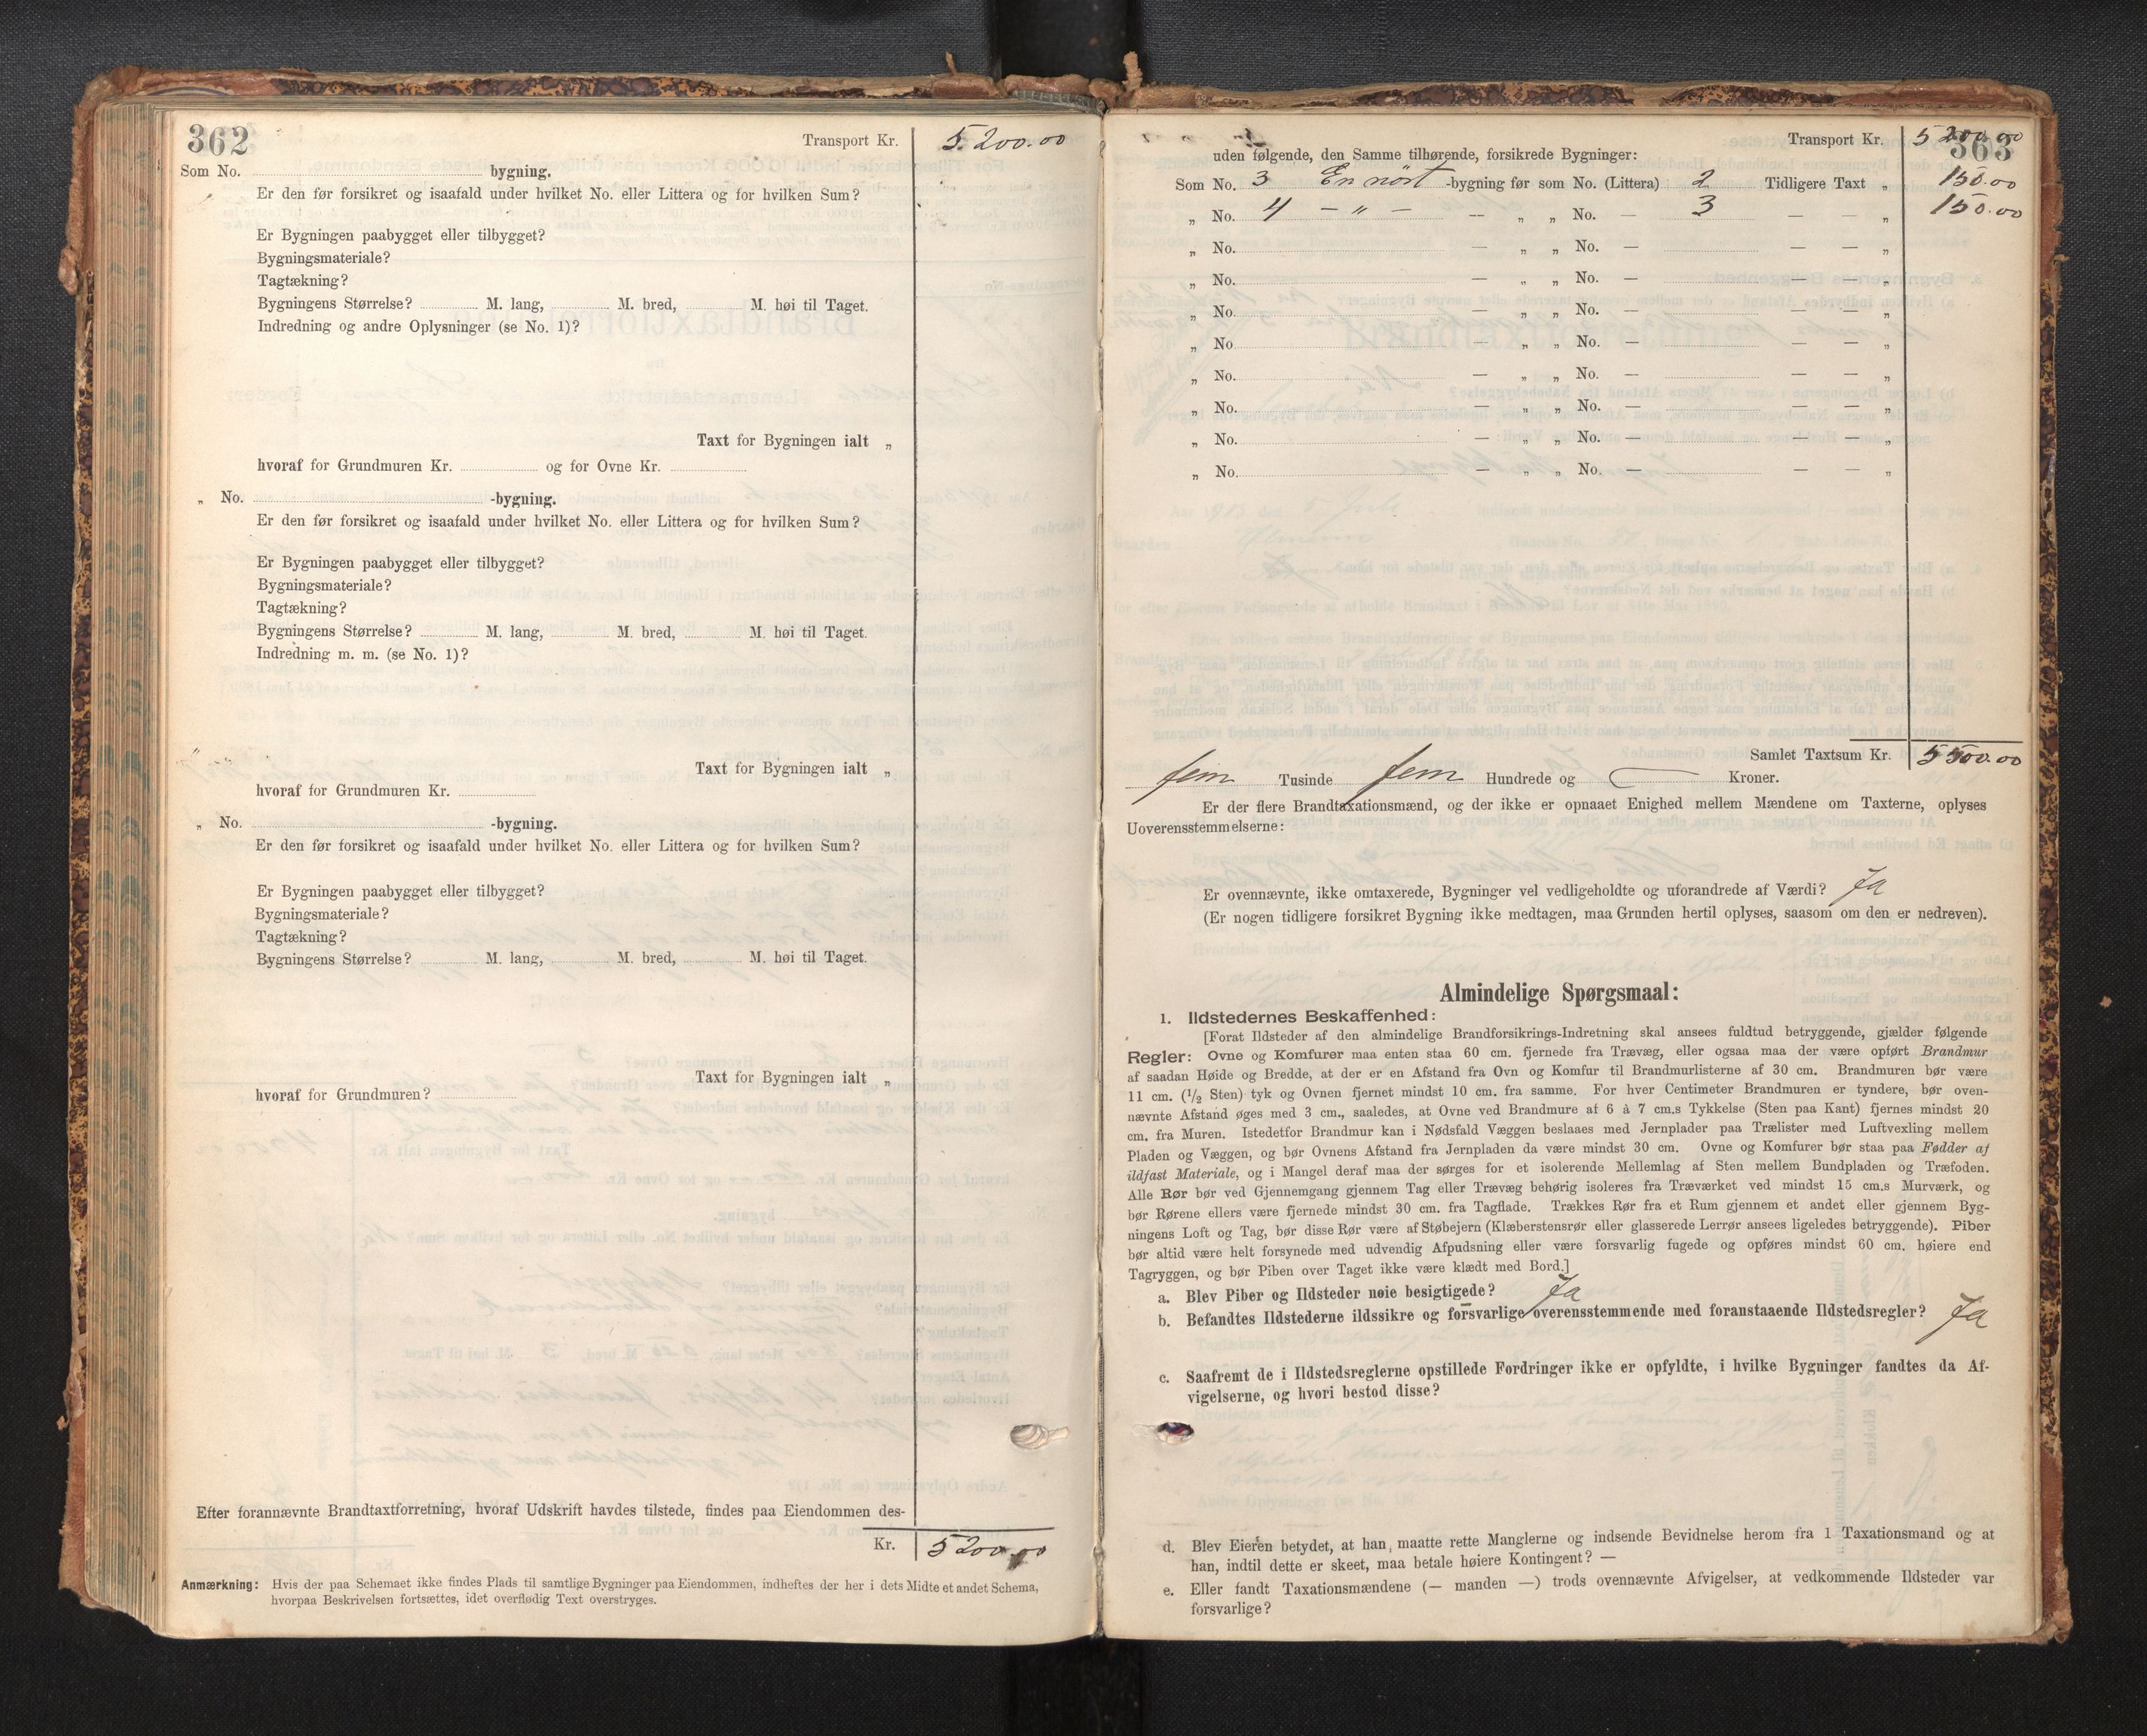 362
Transport Kr. 5200.00
Som No. bygning.
Er den før forsikret og isaafald under hvilket No. eller Littera og for hvilken Sum?
Er Bygningen paabygget eller tilbygget?
Bygningsmateriale?
Tagtækning?
Bygningens Størrelse? M. lang, M. bred, M. høi til Taget.
Indredning og andre Oplysninger (se No. 1)?
Taxt for Bygningen ialt „
hvoraf for Grundmuren Kr. og for Ovne Kr.
„ No. -bygning.
Er den før forsikret og isaafald under hvilket No. eller Littera og for hvilken Sum?
Er Bygningen paabygget eller tilbygget?
Bygningsmateriale?
Tagtækning?
Bygningens Størrelse? M. lang, M. bred, M. høi til Taget.
Indredning m. m. (se No. 1)?
Taxt for Bygningen ialt „
hvoraf for Grundmuren Kr.
„ No. -bygning.
Er den før forsikret og isaafald under hvilket No. eller Littera og for hvilken Sum?
Er Bygningen paabygget eller tilbygget?
Bygningsmateriale?
Tagtækning?
Bygningens Størrelse? M. lang, M. bred, M. høi til Taget.
Taxt for Bygningen ialt „
hvoraf for Grundmuren?
Efter forannævnte Brandtaxtforretning, hvoraf Udskrift havdes tilstede, findes paa Eiendommen des-
Kr. 5200.00
Anmærkning: Hvis der paa Schemaet ikke findes Plads til samtlige Bygninger paa Eiendommen, indheftes der her i dets Midte et andet Schema,
hvorpaa Beskrivelsen fortsættes, idet overflødig Text overstryges.
363
Transport Kr. 5200.00
uden følgende, den Samme tilhørende, forsikrede Bygninger:
Som No. 3 En nöst -bygning før som No. (Littera) 2 Tidligere Taxt „ 150.00
„ No. 4 — „ — — „ „ No. — 3 — — „ 150.00
„ No. — „ „ No. — — — „
„ No. — „ „ No. — — — „
„ No. — „ „ No. — — — „
„ No. — „ „ No. — — — „
„ No. — „ „ No. — — — „
„ No. — „ „ No. — — — „
„ No. — „ „ No. — — — „
„ No. — „ „ No. — — — „
Samlet Taxtsum Kr. 5500.00
fem Tusinde fem Hundrede og — Kroner.
Er der flere Brandtaxationsmænd, og der ikke er opnaaet Enighed mellem Mændene om Taxterne, oplyses
Uoverensstemmelserne:
Er ovennævnte, ikke omtaxerede, Bygninger vel vedligeholdte og uforandrede af Værdi? Ja
(Er nogen tidligere forsikret Bygning ikke medtagen, maa Grunden hertil oplyses, saasom om den er nedreven).
Almindelige Spørgsmaal:
1. Ildstedernes Beskaffenhed:
[Forat Ildsteder af den almindelige Brandforsikrings-Indretning skal ansees fuldtud betryggende, gjælder følgende
Regler: Ovne og Komfurer maa enten staa 60 cm. fjernede fra Trævæg, eller ogsaa maa der være opført Brandmur
af saadan Høide og Bredde, at der er en Afstand fra Ovn og Komfur til Brandmurlisterne af 30 cm. Brandmuren bør være
11 cm. (1/2 Sten) tyk og Ovnen fjernet mindst 10 cm. fra samme. For hver Centimeter Brandmuren er tyndere, bør oven-
nævnte Afstand øges med 3 cm., saaledes, at Ovne ved Brandmure af 6 à 7 cm.s Tykkelse (Sten paa Kant) fjernes mindst 20
cm. fra Muren. Istedetfor Brandmur kan i Nødsfald Væggen beslaaes med Jernplader paa Trælister med Luftvexling mellem
Pladen og Væggen, og bør Ovnens Afstand fra Jernpladen da være mindst 30 cm. Ovne og Komfurer bør staa paa Fødder af
ildfast Materiale, og i Mangel deraf maa der sørges for et isolerende Mellemlag af Sten mellem Bundpladen og Træfoden.
Alle Rør bør ved Gjennemgang gjennem Tag eller Trævæg behørig isoleres fra Træværket ved mindst 15 cm.s Murværk, og
bør Rørene ellers være fjernede mindst 30 cm. fra Tagflade. Trækkes Rør fra et Rum gjennem et andet eller gjennem Byg-
ningens Loft og Tag, bør disse Rør være af Støbejern (Klæberstensrør eller glasserede Lerrør ansees ligeledes betryggende). Piber
bør altid være helt forsynede med udvendig Afpudsning eller være forsvarlig fugede og opføres mindst 60 cm. høiere end
Tagryggen, og bør Piben over Taget ikke være klædt med Bord.]
a. Blev Piber og Ildsteder nøie besigtigede? Ja
b. Befandtes Ildstederne ildssikre og forsvarlige overensstemmende med foranstaaende Ildstedsregler? Ja
c. Saafremt de i Ildstedsreglerne opstillede Fordringer ikke er opfyldte, i hvilke Bygninger fandtes da Af-
vigelserne, og hvori bestod disse?
d. Blev Eieren betydet, at han maatte rette Manglerne og indsende Bevidnelse herom fra 1 Taxationsmand og at
han, indtil dette er skeet, maa betale høiere Kontingent? —
e. Eller fandt Taxationsmændene (— manden —) trods ovennævnte Afvigelser, at vedkommende Ildsteder var
forsvarlige?